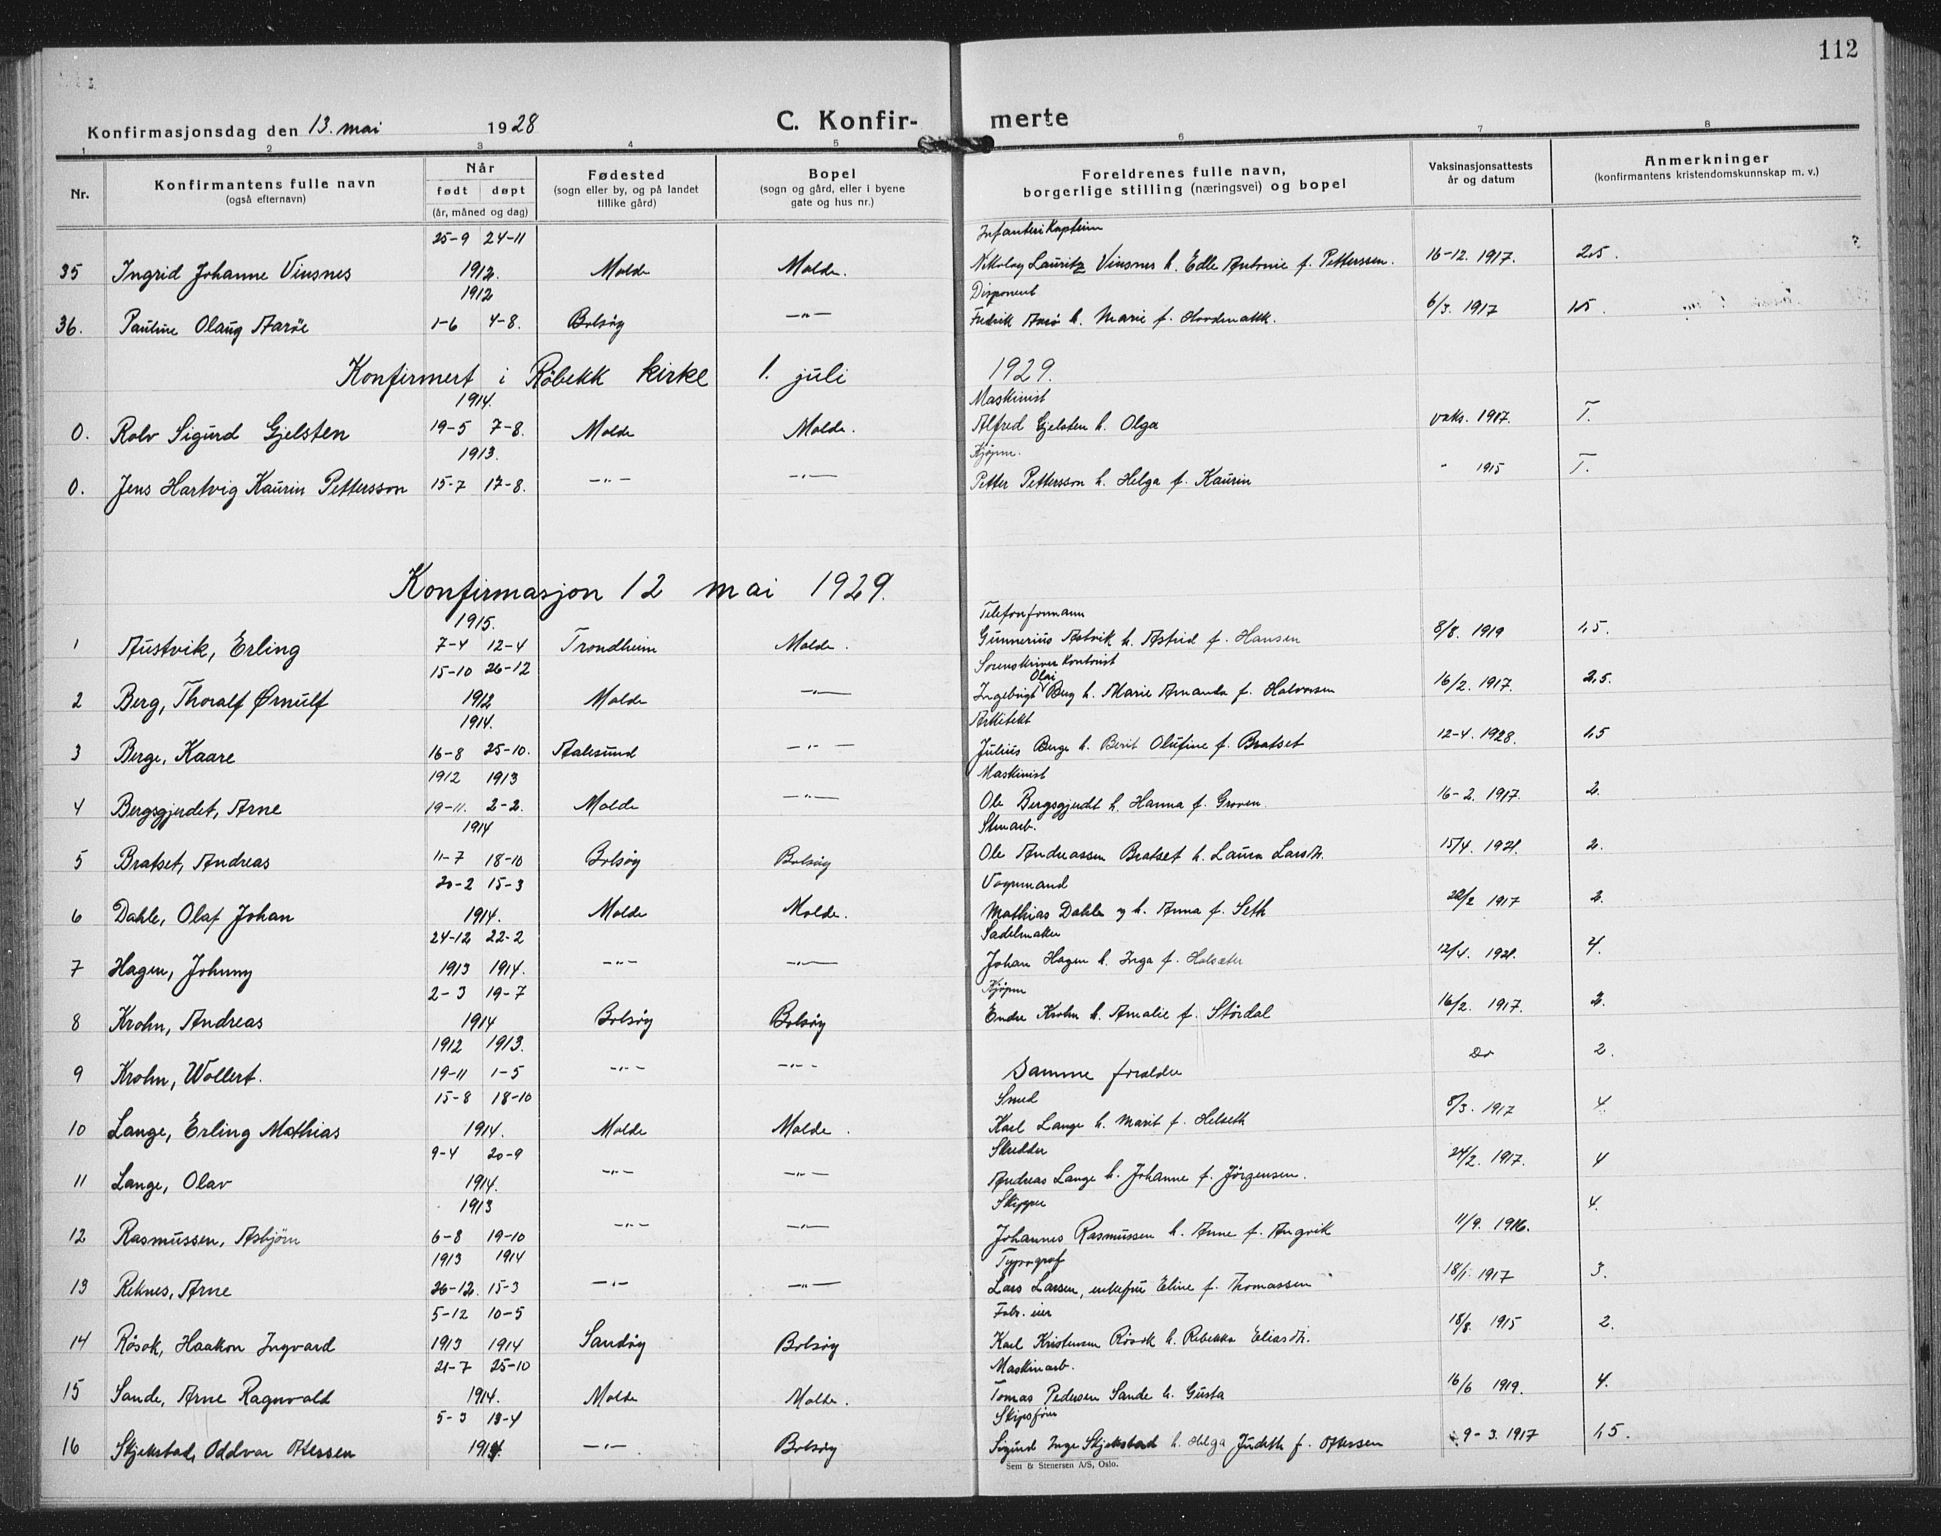 112
Konfirmasjonsdag den 13. mai 1928 C. Konfir- merte
1 2 3 4 5 6 7 8
Nr. Konfirmantens fulle navn (også efternavn) Når født døpt (år, måned og dag) Fødested (sogn eller by, og på landet tillike gård) Bopel (sogn og gård, eller i byene gate og hus nr.) Foreldrenes fulle navn, borgerlige stilling (næringsvei) og bopel Vaksinasjonsattests år og datum Anmerkninger (konfirmantens kristendomskunnskap m. v.)
25-9 24-11 Infanterikaptein
35 Ingrid Johanne Vinsnes 1912. Molde Molde. Nikolay Lauritz Vinsnes h. Edle Antonie f. Petterssen. 16-12. 1917. 2,5.
1912 Disponent
36. Pauline Olaug Aarøe 1-6 4-8. Bolsøy -"- Fredrik Arø h. Marie f. 6/3. 1917 1,5.
Konfirmert i Røbekk kirke 1. juli 1929.
1914. Maskinist
0. Rolv Sigurd Gjelsten 19-5 7-8. Molde Molde. Alfred Gjelsten h. Olga vaks. 1917. T.
1913. Kjøpm.
0. Jens Hartvig Kaurin Pettersson 15-7 17-8. -"- -"- Petter Pettersson h. Helga f. Kaurin " 1915 T.
Konfirmasjon 12 mai 1929.
1915. Telefonformann
1 Austvik, Erling 7-4 12-4 Trondheim Molde. Gunnerius Astvik h. Astrid f. Hansen 8/8. 1919 1,5.
15-10 26-12 Sorenskriver kontorist
2 Berg, Thoralf Ørnulf 1912 Molde -"- Ingebrigt Olai Berg h. Marie Amanda f. Halvorsen 16/2. 1917. 2,5.
1914. Arkitekt
3 Berge, Kaare 16-8 25-10. Aalesund -"- Julius Berge h. Berit Olufine f. Bratset 12-4. 1928. 1,5
1912 1913 Maskinist
4 Bergsgjerdet, Arne 19-11. 2-2. Molde -"- Ole Bergsgjerdt h. Hanna f. Groven. 16-2. 1917. 2.
1914 Stenarb.
5 Bratset, Andreas 11-7 18-10 Bolsøy Bolsøy Ole Andreassen Bratset h. Laura Larsdt. 15/4. 1921. 2.
20-2 15-3 Vognmand
6 Dahle, Olaf Johan 1914. Molde Molde. Mathias Dahle og h. Anna f. Seth 22/2 1917 2.
24-12 22-2 Sadelmaker
7 Hagen, Johnny 1913 1914. -"- -"- Johan Hagen h. Inga f. Holsæter 12/4. 1921. 4.
2-3 19-7 Kjøpm
8 Krohn, Andreas 1914 Bolsøy Bolsøy Endre Krohn h. Amalie f. Stördal 16/2. 1917. 2.
1912 1913.
9 Krohn, Wollert. 19-11 1-5 -"- -"- Samme foreldre Do 2.
15-8 18-10 Smed
10 Lange, Erling Mathias 1914. Molde Molde. Karl Lange h. Marit f. Helseth 8/3. 1917 4
9-4 20-9 Skredder
11 Lange, Olav 1914. -"- -"- Andreas Lange h. Johanne f. Jörgensen. 24/2. 1917. 4
1913 Skipper
12 Rasmussen, Asbjørn 6-8 19-10 -"- -"- Johannes Rasmussen h. Anne f. Angvik 11/9. 1916. 4.
1913 1914 Typograf
13 Reknes, Arne 26-12. 15-3 -"- -"- Lars Larsen, enkefru Eline f. Thomassen 18/1. 1917 3.
5-12 10-5 Fabr. eier
14 Røsok, Haakon Ingvard 1913 1914 Sandøy Bolsøy Karl Kristensen Røsok h. Rebekka Eliasdt. 18/8. 1915 2.
21-7 25-10 Maskinarb.
15 Sande, Arne Ragnvald 1914. Molde Molde. Tomas Pedersen Sande h. Gusta 16/6 1919. 4.
5-3 13-4 Skipsfører
16 Skjelstad, Oddvar Ottessen 1914. -"- Bolsøy Sigurd Inge Skjelstad h. Helga Judith f. Ottessen 9-3. 1917 1,5.
Sem & Stenersen A/S, Oslo.